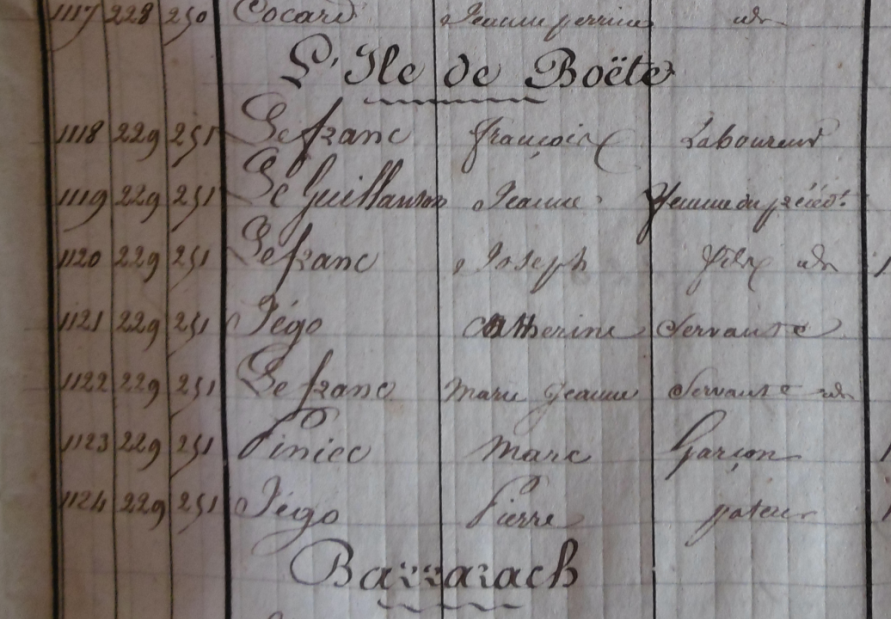 1117 228 250 Cocard Jeanne perrine id
L'Ile de Boëte
1118 229 251 Le franc françois Laboureur
1119 229 251 Le Guillanton Jeanne femme du précédt
1120 229 251 Le franc Joseph fils id
1121 229 251 Jégo Catherine Servante
1122 229 251 Le franc Marie Jeanne Servante id
1123 229 251 Piniec Marc Garçon
1124 229 251 Jégo Pierre pateur
Barrarach